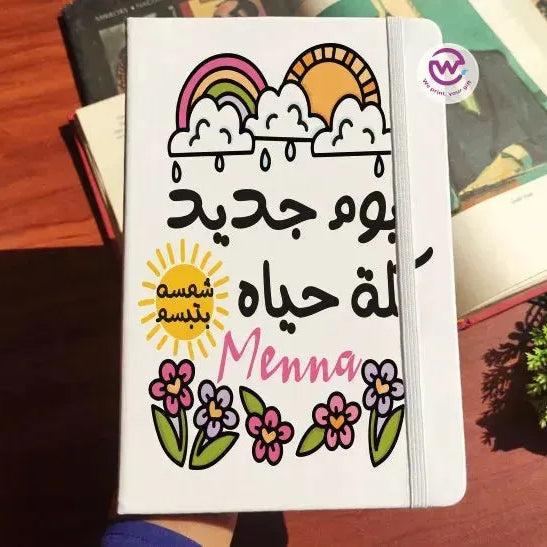 We print, your gift
يوم جديد
كلة حياه
شمسه
بتبسم
Menna